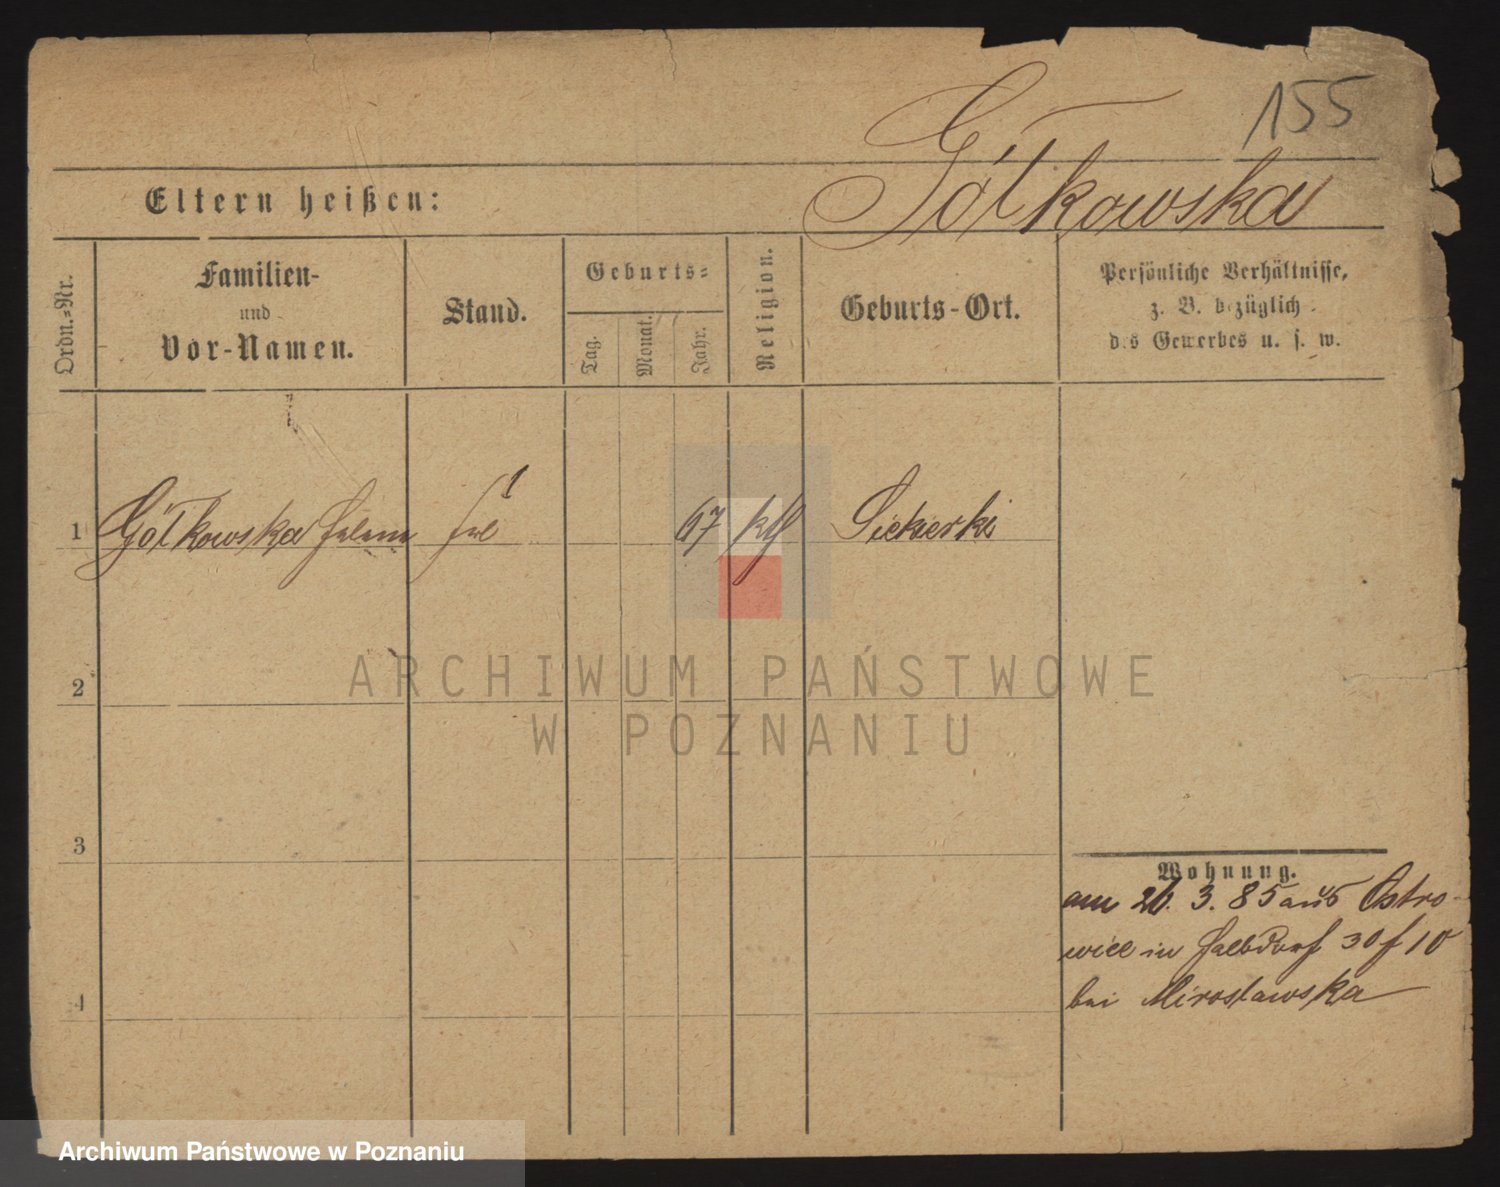 155
Gółkowska
Eltern heißen:
Ordn.-Nr.
Familien-
und
Vor-Namen.
Stand.
Geburts-
Tag.
Monat.
Jahr.
Religion.
Geburts-Ort.
Persönliche Verhältnisse,
z. B. bezüglich
des Gewerbes u. s. w.
1 Gółkowska Helene 67 kth Siekierki
2
3
4
Wohnung.
am 26. 3. 85 aus Ostro-
wiec in Halbdorf 30 f 10
bei Miroslawska
ARCHIWUM PAŃSTWOWE
W POZNANIU
Archiwum Państwowe w Poznaniu